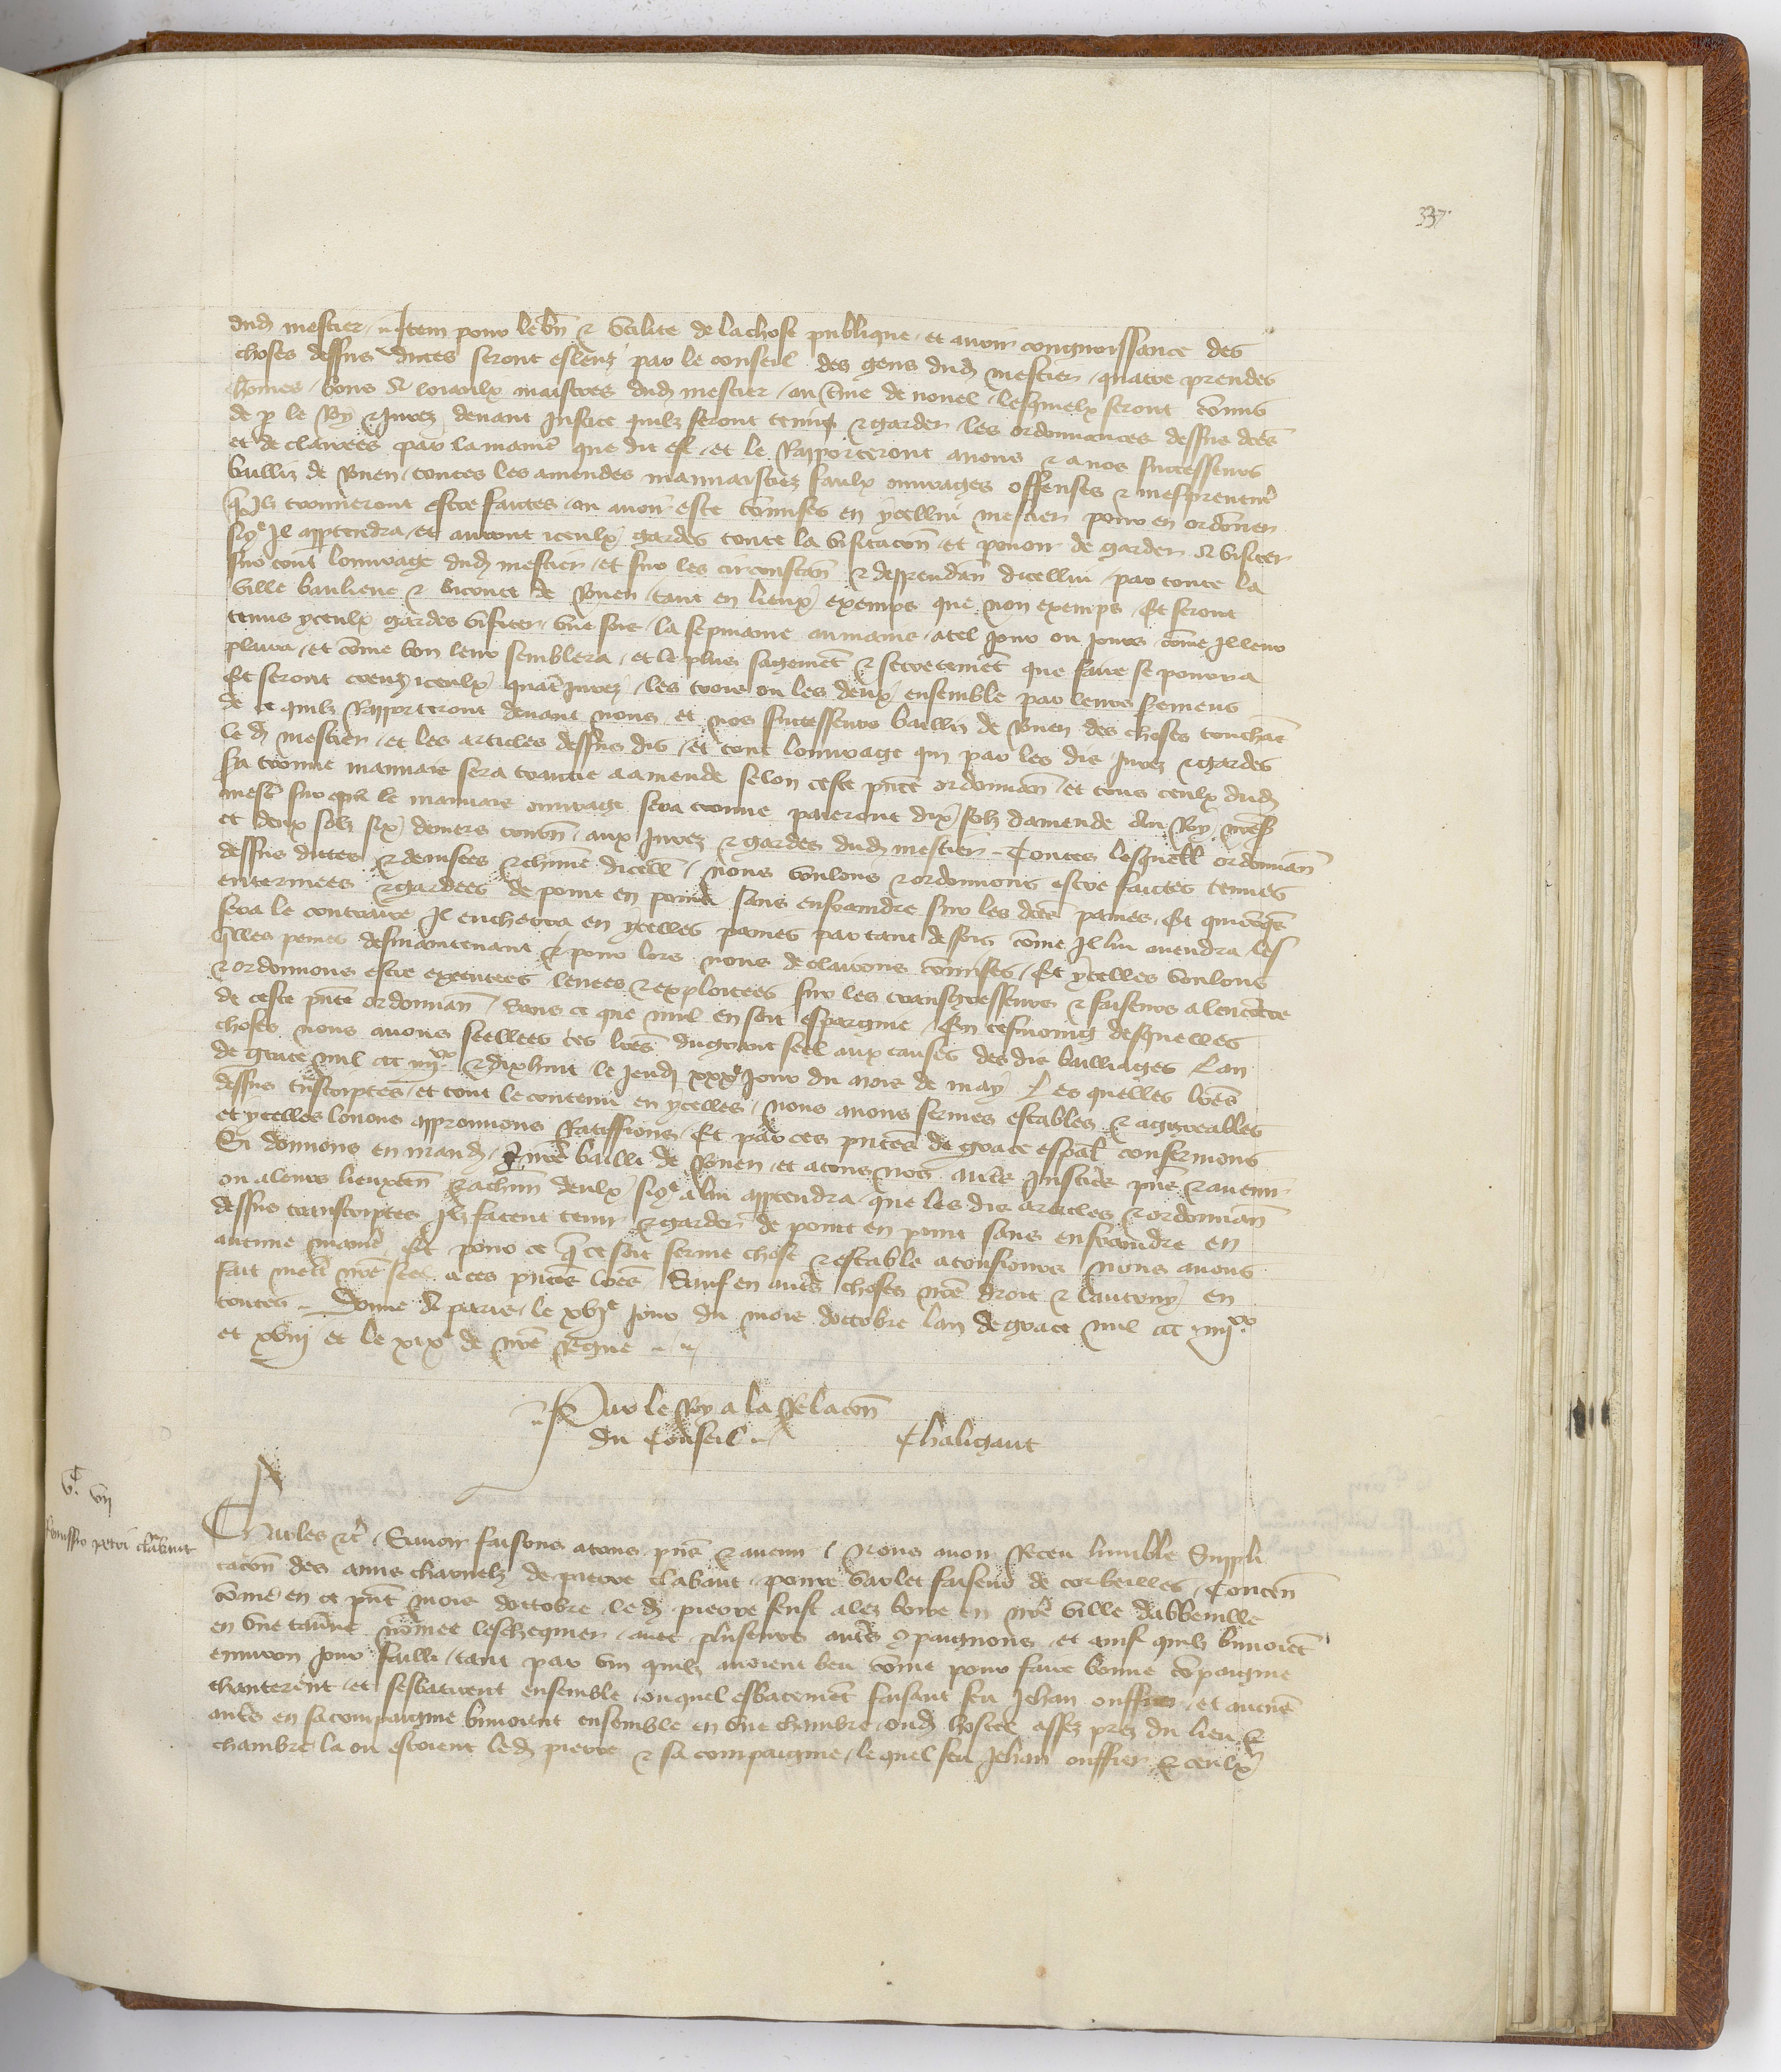 337.
dud mestier. Item pour le bn & utilite de la chose publique. et avoir congnoissance des
choses dessus dictes seront esleuz par le conseil des gens dud mestier quatre preudes
homes bons & loiaulx maistres dud mestier au terme de nouel lesquelx seront comis
de p le Roy & jurez devant justice quilz seront tenus & garder les ordonnances dessus dces
et declairees par la maniere que dit est et le Rapporteront a nous & a nos successeurs
bailliz de Rouen toutes les amendes mauvaistiez faulx ouvrages offenses & mesprentures
qilz trouveront estre faictes ou avoir este comises en ycellui mestier pour en ordonner
si come Il appartendra et auront iceulx gardes toute la visitacon et povoir de garder & visiter
sur tout louvrage dud mestier et sur les circonstan & deppendan dicellui par toute la
ville banlieue & viconte de Rouen tant en lieux exemps que non exemps. Et seront
tenus yceulx gardes visiter une fois la sepmaine au mains a tel jour ou jours come Il leur
plaira et come bon leur semblera et le plus sagement & secretement que faire se pourra
Et seront creuz iceulx quatre jurez les trois ou les deux ensemble par leurs seremens
de ce quilz Rapporteront devant nous et nos successeurs bailliz de Rouen des choses touchans
le d mestier et les articles dessus dis et tout louvrage qui par les dis jurez & gardes
sera trouve mauvais sera traictie a amende selon ceste pnte ordonnan et tous ceulx dud
mest sur qui le mauvais ouvrage sera trouve paieront dix solz damende au Roy nres
et deux solz six deniers tourn aux jurez & gardes dud mestier. Toutes lesquelles ordonnan
dessus dittes & devisees & chune dicell nous voulons & ordonnons estre faictes tenues
enterinees & gardees de point en point sans enfraindre sur les dces paines. Et quiconques
fera le contraire Il encherra en ycelles paines par tant de fois come Il lui avendra les
qlles peines des maintenant & pour lors nous declairons comises. Et ycelles voulons
& ordonnons estre executees levees & exploitees sur les transgresseurs & faiseurs a lencontre
de ceste pnte ordonnan sans ce que nul en soit espargnie. En tesmoing desquelles
choses nous avons seellees ces lres du grant seel aux causes des dis bailliages Lan
de grace mil ccc iiiixx & dix huit le jeudi xxxe jour du mois de may. Les quelles lres
dessus transcriptes et tout le contenu en ycelles nous avons fermes estables & aggreables
et ycelles louons approuvons Ratiffions. Et par ces pntes de grace espal confermons
Si donnons en mand a nre bailli de Rouen et a tous nos autres justiciers pns & avenir
ou a leurs lieuxten & a chun deulx si come a lui appartendra que les dis articles & ordonnan
dessus transcriptes Ilz facent tenir & garder de point en point sans enfraindre en
aucune maniere. Et pour ce que ce soit ferme chose & estable a tousjours nous avons
fait mett nre seel a ces pntes lres Sauf en autres choses nre droit & lautruy en
toutes. Donne a paris le xvje jour du mois doctobre lan de grace mil ccc iiiixx
et xviij et le xixe de nre Regne
Par le Roy a la Relacon
du Conseil Chaligaut
vc vij
Remissio petri clabaut
Charles &c Savoir faisons a tous pns & avenir Nous avoir Receu lumble Suppli
cacon des amis charnelz de pierre clabaut povre varlet faiseur de corbeilles Conten
come en ce pnt mois doctobre le d pierre feust alez boire en nre ville dabbeville
en une taverne nomee leschequier avec pluseurs autres compaignons et ainsi quilz buvoient
environ jour failli tant par vin quilz avoient beu come pour faire bonne compaignie
chanterent et sesbatirent ensemble ouquel esbatement faisant feu Jehan ouffier et aucuns
autres en sa compaignie buvoient ensemble en une chambre oud hostel assez prez du lieu &
chambre la ou estoient led pierre & sa compaignie lequel feu Jehan ouffier & ceulx